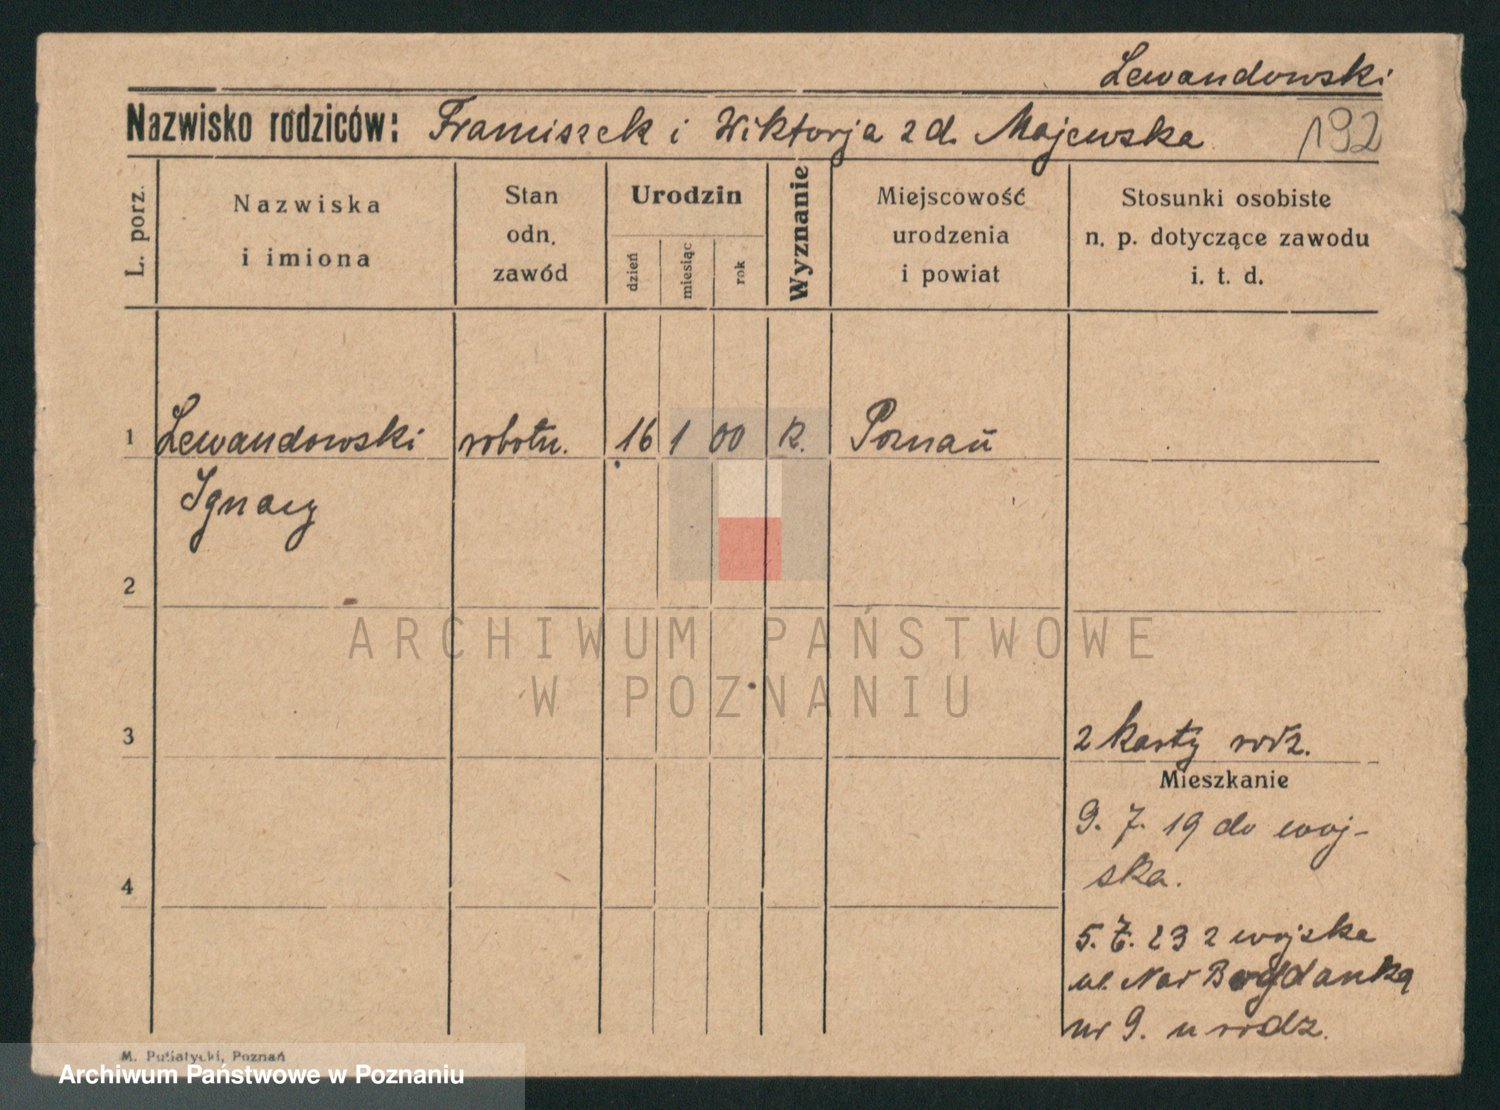 Lewandowski
Nazwisko rodziców: Franciszek i Wiktorja z d. Majewska
192
L. porz.
Nazwiska
i imiona
Stan
odn.
zawód
Urodzin
dzień
miesiąc
rok
Wyznanie
Miejscowość
urodzenia
i powiat
Stosunki osobiste
n. p. dotyczące zawodu
i. t. d.
1 Lewandowski robotn. 16 1 00 R. Poznań
Ignacy
2
ARCHIWUM PAŃSTWOWE
W POZNANIU
3
2 karty rodz.
Mieszkanie
9. 7. 19 do woj-
ska.
4
5. 7. 23 z wojska
ul. Nad Bogdanką
nr 9. u rodz.
M. Putiatycki, Poznań
Archiwum Państwowe w Poznaniu